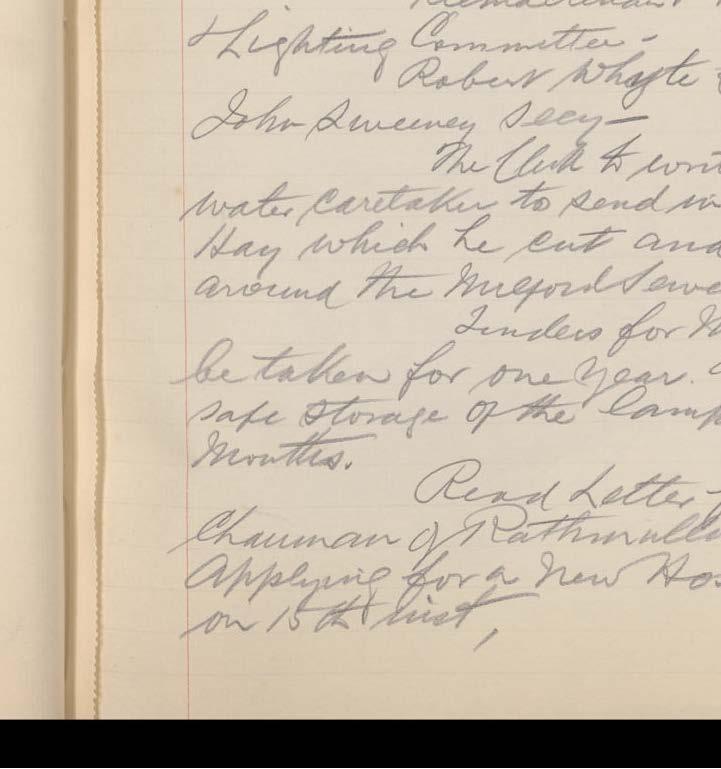 & Lighting Committee -
Robert Whyte
John Sweeney Secy -
The Clerk to
water caretaker to send in
Hay which he cut and
around the Milford
Tenders for
be taken for one year.
safe storage of the Lamp
Months.
Read Letter
Chairman of
Applying for a New
on 15th inst,